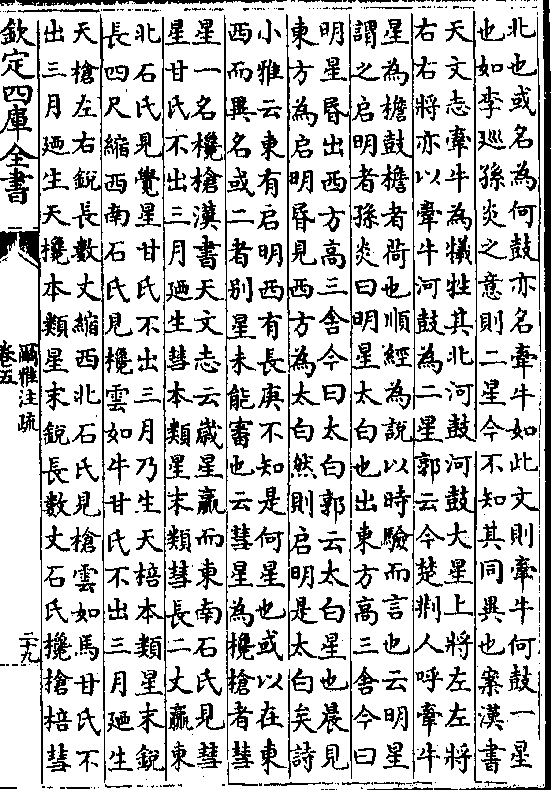 北也或名為何鼓亦名牽牛如此文則牽牛何鼓一星
也如李廵孫炎之意則二星今不知其同異也案漢書
天文志牽牛為犧牲其北河鼓河鼓大星上將左左將
右右將亦以牽牛河鼓為二星郭云今楚荆人呼牽牛
星為檐鼓檐者荷也順經為說以時驗而言也云明星
謂之启明者孫炎曰明星太白也出東方高三舍今曰
明星昏出西方高三舍今曰太白郭云太白星也晨見
東方為启明昏見西方為太白然則启明是太白矣詩
小雅云東有启明西有長庚不知是何星也或以在東
西而異名或二者别星未能審也云彗星為欃槍者彗
星一名欃槍漢書天文志云歲星贏而東南石氏見彗
星甘氏不出三月廼生彗本類星末類彗長二丈贏東
北石氏見覺星甘氏不出三月乃生天棓本類星末銳
長四尺縮西南石氏見欃雲如牛甘氏不出三月廼生
天槍左右銳長數丈縮西北石氏見槍雲如馬甘氏不
出三月廼生天欃本類星末銳長數丈石氏欃槍棓彗
欽定四庫全書
爾雅注疏
卷五
二十九